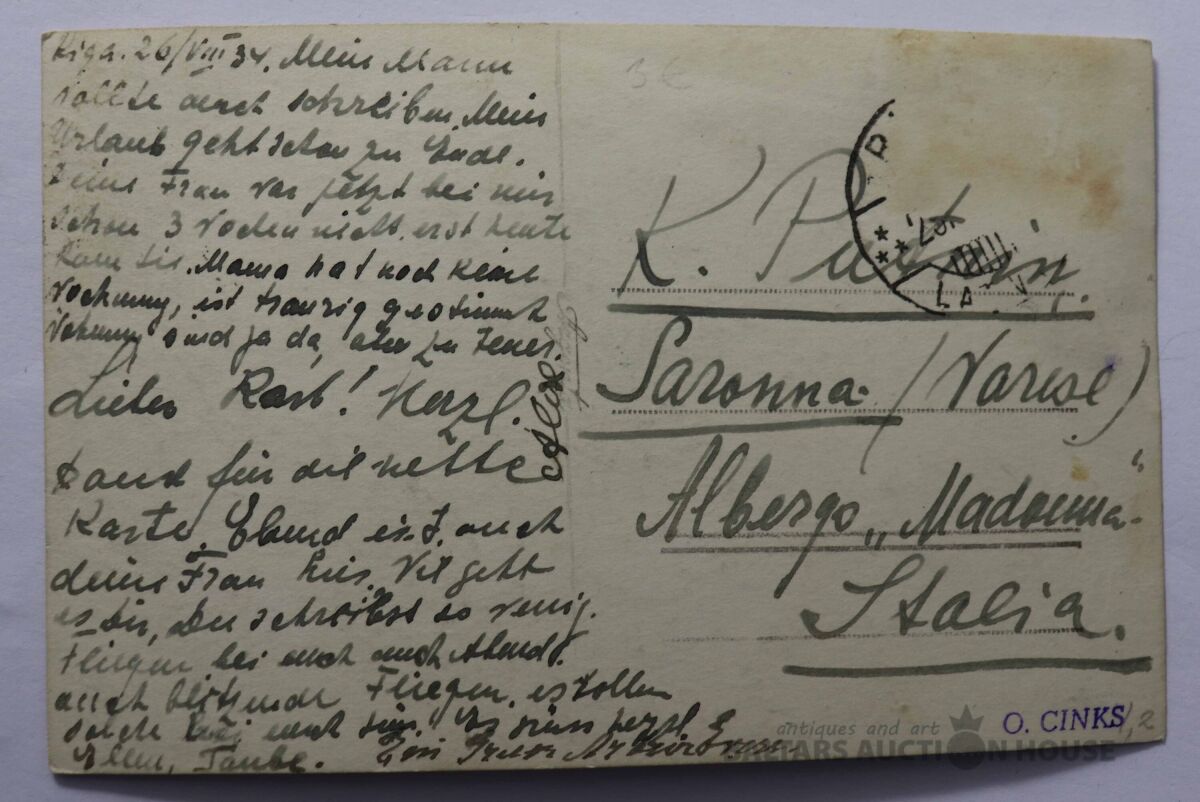 Riga. 26/VIII 34. Mein Mann
sollte auch schreiben. Mein
Urlaub geht schon zu Ende.
Deine Frau var jetzt bei mir
schon 3 Vochen nicht, erst heute
kam sie. Mama hat noch keine
Vohnung, ist traurig gestimmt
Vohnung sind ja da, aber zu teuer.
Lieber Karl! Herzl.
Dank für die nette
Karte. Abend ist auch
deine Frau hier. Vie geht
es Dir, Du schreibst so venig.
Fliegen bei euch auch Abends
auch blitzende Fliegen, es sollen
solche bei euch sein. Es grüss herzl.
Ellen, Taube.
3 €
K.
Saronna (Varese)
Albergo „Madonna“
Italia.
LA
O. CINKS
antiques and art
BALTARS AUCTION HOUSE